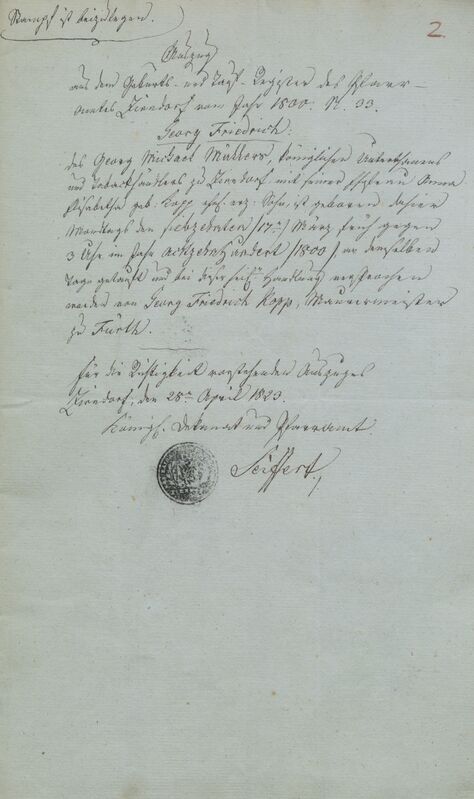 Stempel ist beizulegen.
2.
Auszug
aus dem Geburts- und Tauf-Register des Pfarr-
amtes Zirndorf vom Jahr 1800. N. 33.
Georg Friedrich:
des Georg Michael Müllers, königlichen Unterthanens
und Tabackhändlers zu Zirndorf mit seiner Ehefrau Anna
Elisabetha geb: Kopp ehel. erz. Sohn, ist geboren dahier
Montags den siebzehnten /17./ März früh gegen
3 Uhr im Jahr achtzehnhundert /1800/ an demselben
Tage getauft und bei dieser heil. Handlung versprochen
worden von Georg Friedrich Kopp, Maurermeister
zu Fürth.
Für die Richtigkeit vorstehenden Auszuges
Zirndorf, den 28ten April 1823.
Königl. Dekanat und Pfarramt
Seiffert.